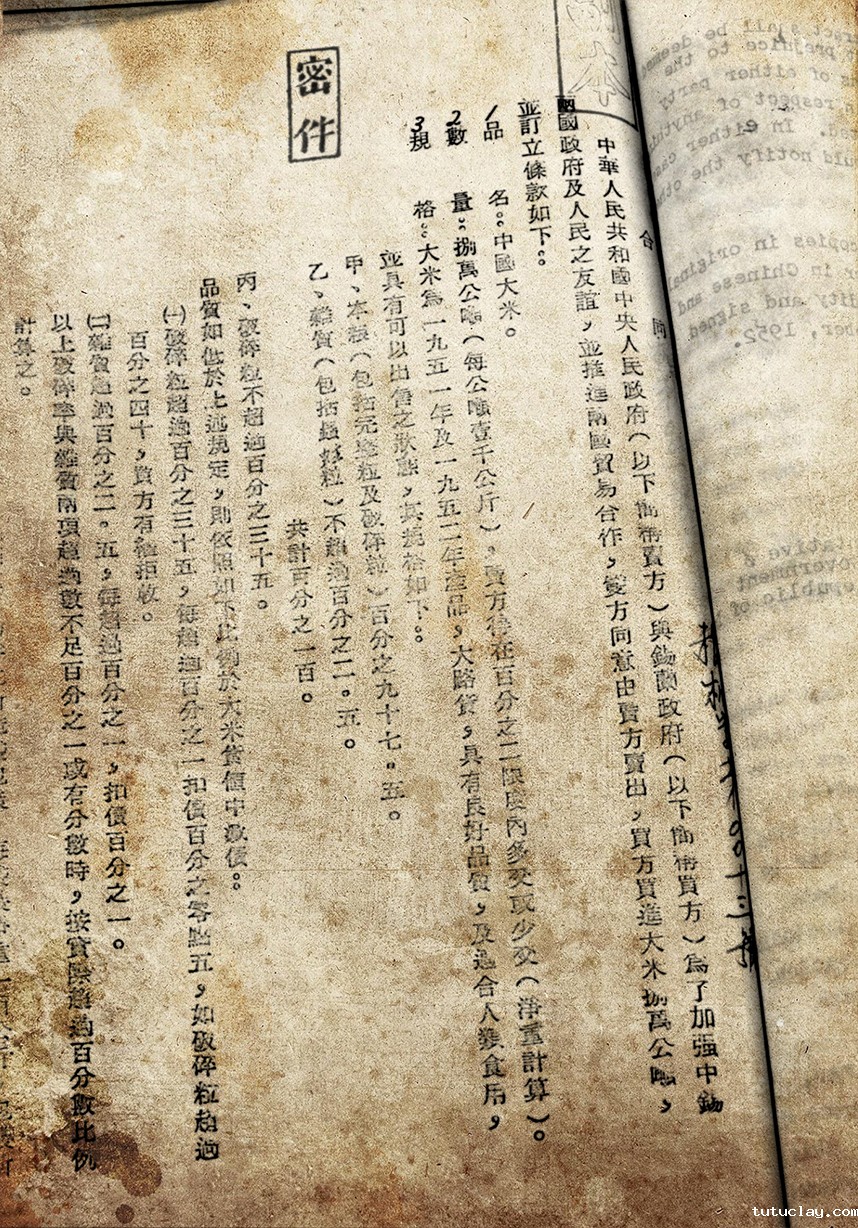 密件
合同
中華人民共和國中央人民政府（以下簡稱賣方）與錫蘭政府（以下簡稱買方）爲了加强中錫
兩國政府及人民之友誼，並推進兩國貿易合作，雙方同意由賣方賣出，買方買進大米捌萬公噸，
並訂立條款如下：
1品　名：中國大米。
2數　量：捌萬公噸（每公噸壹千公斤），賣方得在百分之二限度內多交或少交（淨重計算）。
3規　格：大米爲一九五一年及一九五二年產品，大路貨，具有良好品質，及適合人類食用，
並具有可以出售之狀態，其規格如下：
甲、本粮（包括完整粒及破碎粒）百分之九十七。五。
乙、雜質（包括　粒）不超過百分之二。五。
共計百分之一百。
丙、破碎粒不超過百分之三十五。
品質如低於上述規定，則依照如下比例於大米貨値中救價：
㈠破碎粒超過百分之三十五，每超過百分之一扣價百分之零點五，如破碎粒超過
百分之四十，買方有權拒收。
㈡雜質超過百分之二。五，每超過百分之一，扣價百分之一。
以上破碎率與雜質兩項超過數不足百分之一或有分數時，按實際超過百分數比例
計算之。
of either party
respect of anyth
In either case
uld notify the oth
copies in original
in Chinese and
and signed
ber, 1952.
tative
Government
Republic of
tutuclay.com